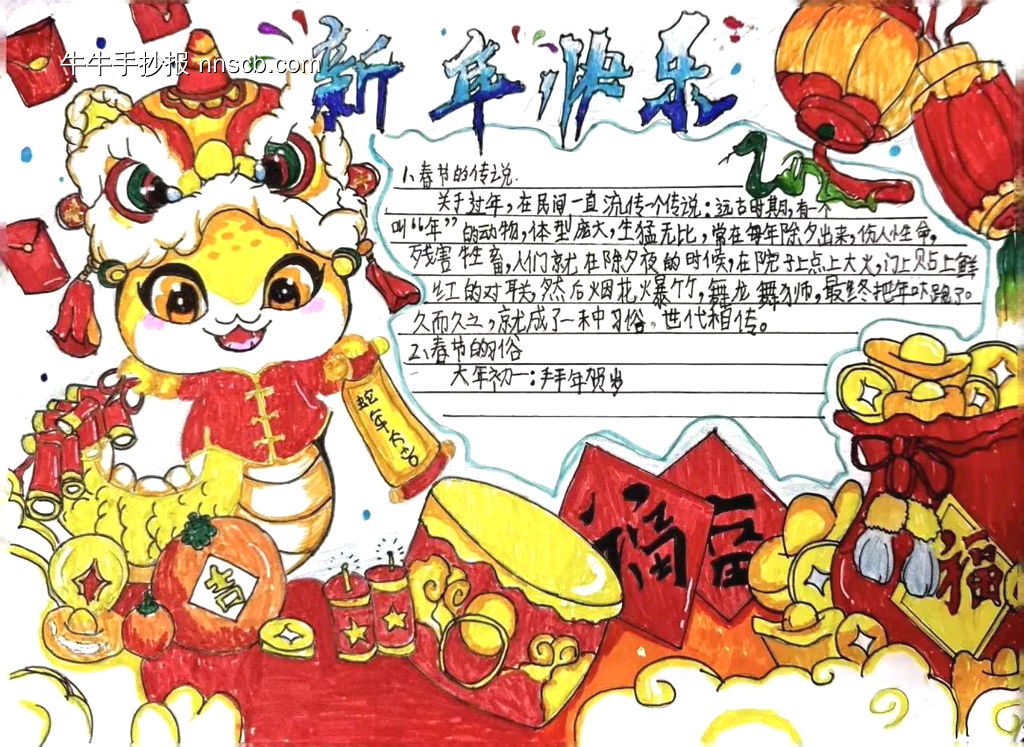 牛牛手抄报 nnscb.com
新年快乐
1、春节的传说.
关于过年,在民间一直流传一个传说:远古时期,有一个
叫“年”的动物,体型庞大,生猛无比,常在每年除夕出来,伤人性命,
残害牲畜,人们就在除夕夜的时候,在院子上点上大火,门上贴上鲜
红的对联然后烟花火暴竹,舞龙舞狮,最终把年吓跑了。
久而久之,就成了一种习俗。世代相传。
2、春节的习俗
大年初一:拜年贺岁
蛇年大吉
福
福
吉
福